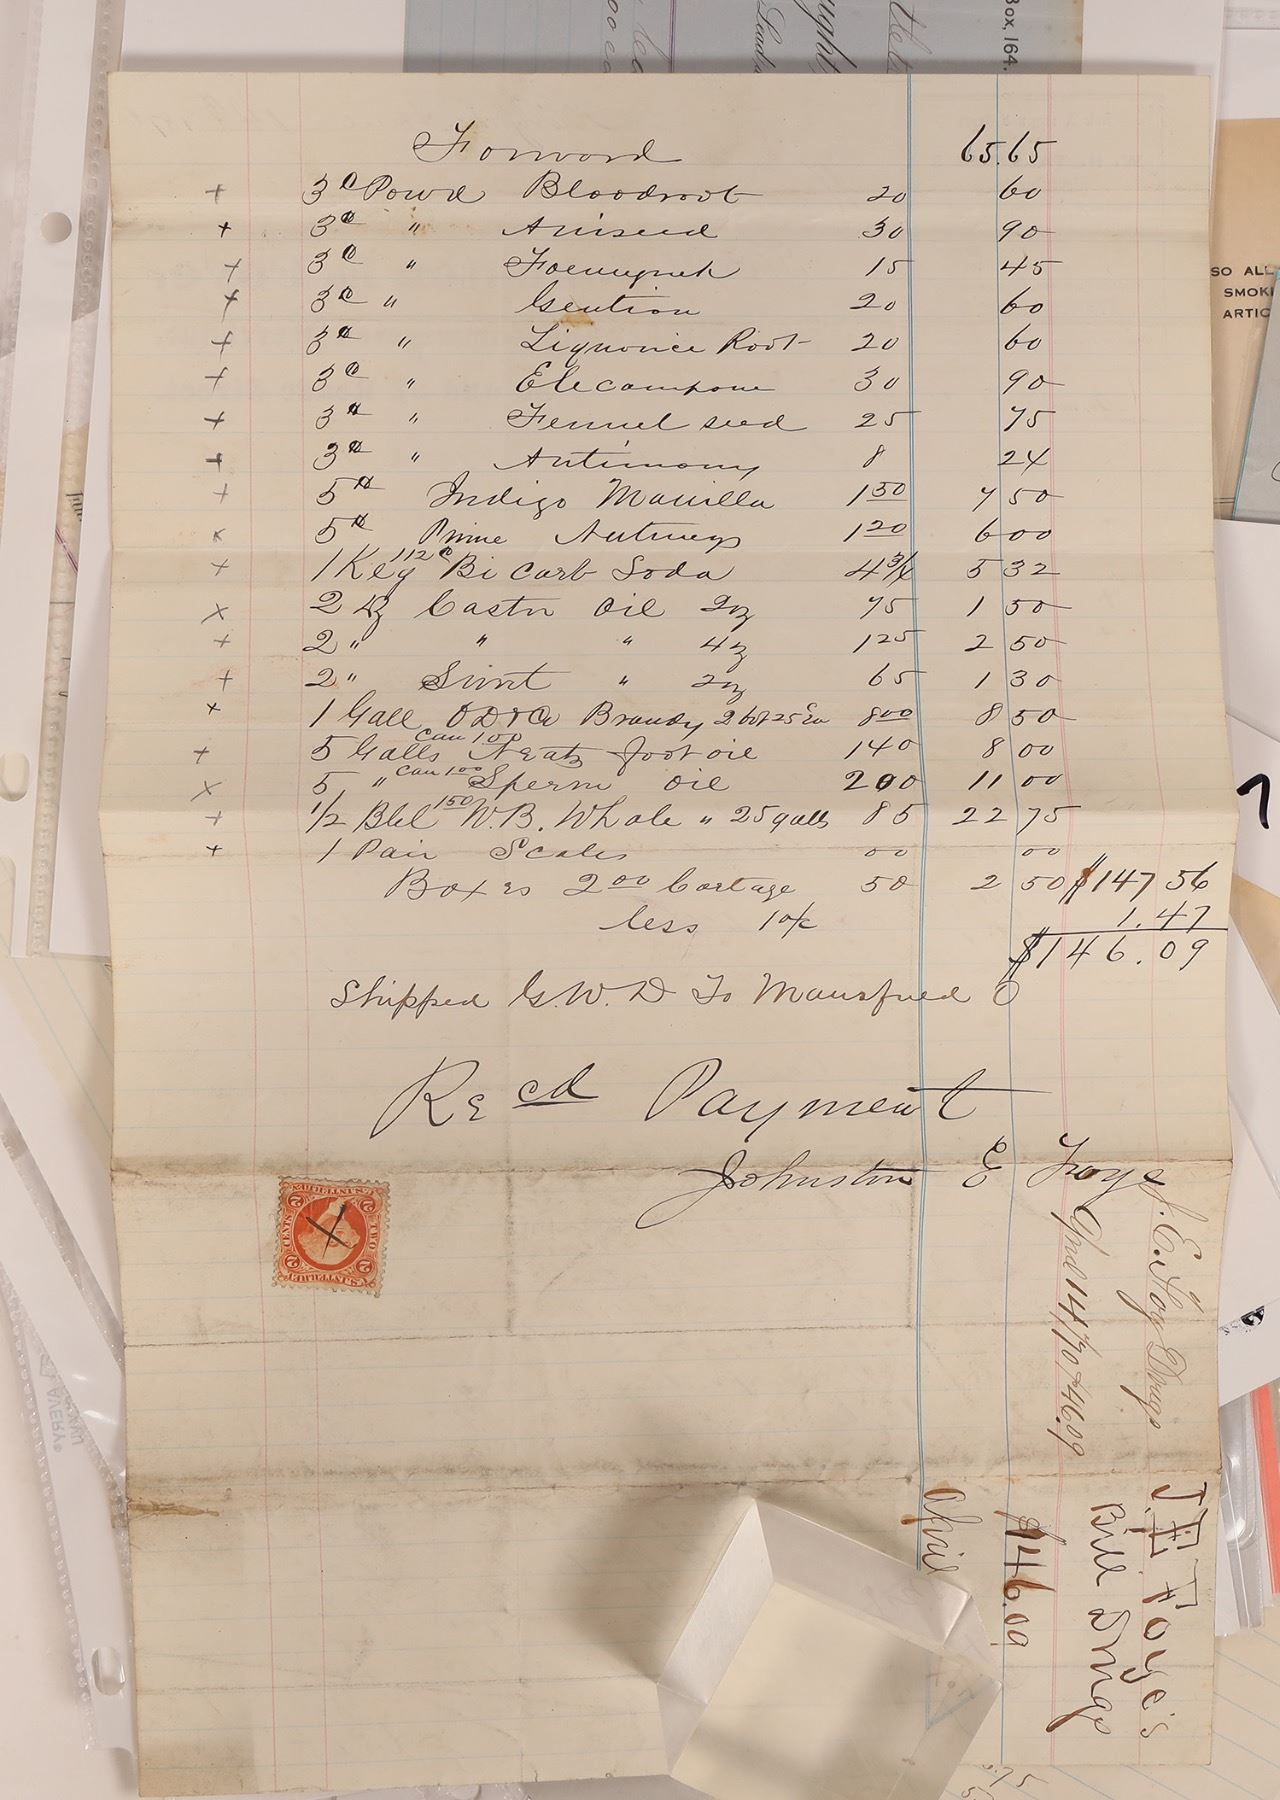 Box, 164.
Forword 65.65
+ 3 lb Powd Bloodroot 20 60
+ 3 lb " Aniseed 30 90
+ 3 lb " Foenugrek 15 45
+ 3 lb " Gention 20 60
+ 3 lb " Liquorice Root 20 60
+ 3 lb " Elecampane 30 90
+ 3 lb " Fennel seed 25 75
+ 3 lb " Antimony 8 24
+ 5 lb Indigo Manilla 1 50 7 50
x 5 lb Prime Nutmegs 1 20 6 00
+ 1 Keg 112 lb Bi Carb Soda 4 3/4 5 32
x 2 Dz Castor Oil 2oz 75 1 50
+ 2 " " " 4oz 1 25 2 50
+ 2 " Swt " 2oz 65 1 30
+ 1 Gall O D & Co Brandy 2 bot 25 Ea 8 00 8 50
+ 5 Galls Can 1 00 Neats foot oil 1 40 8 00
x 5 " can 1 00 Sperm oil 2 00 11 00
+ 1/2 Bbl 1 50 W.B. Whale " 25 galls 85 22 75
+ 1 Pair Scales 00 00
Boxes 2 00 Cartage 50 2 50 $147 56
less 1 o/c 1.47
$146.09
Shipped G.W.D To Mansfield O
Recd Payment
Johnston E Foye
U.S. INTER. REV.
2 TWO CENTS 2
J. E. Foy Drugs
146.09
J. E Foye's
Bill Drugs
$146.09
April
SO ALL
SMOK
ARTIC
AVERY